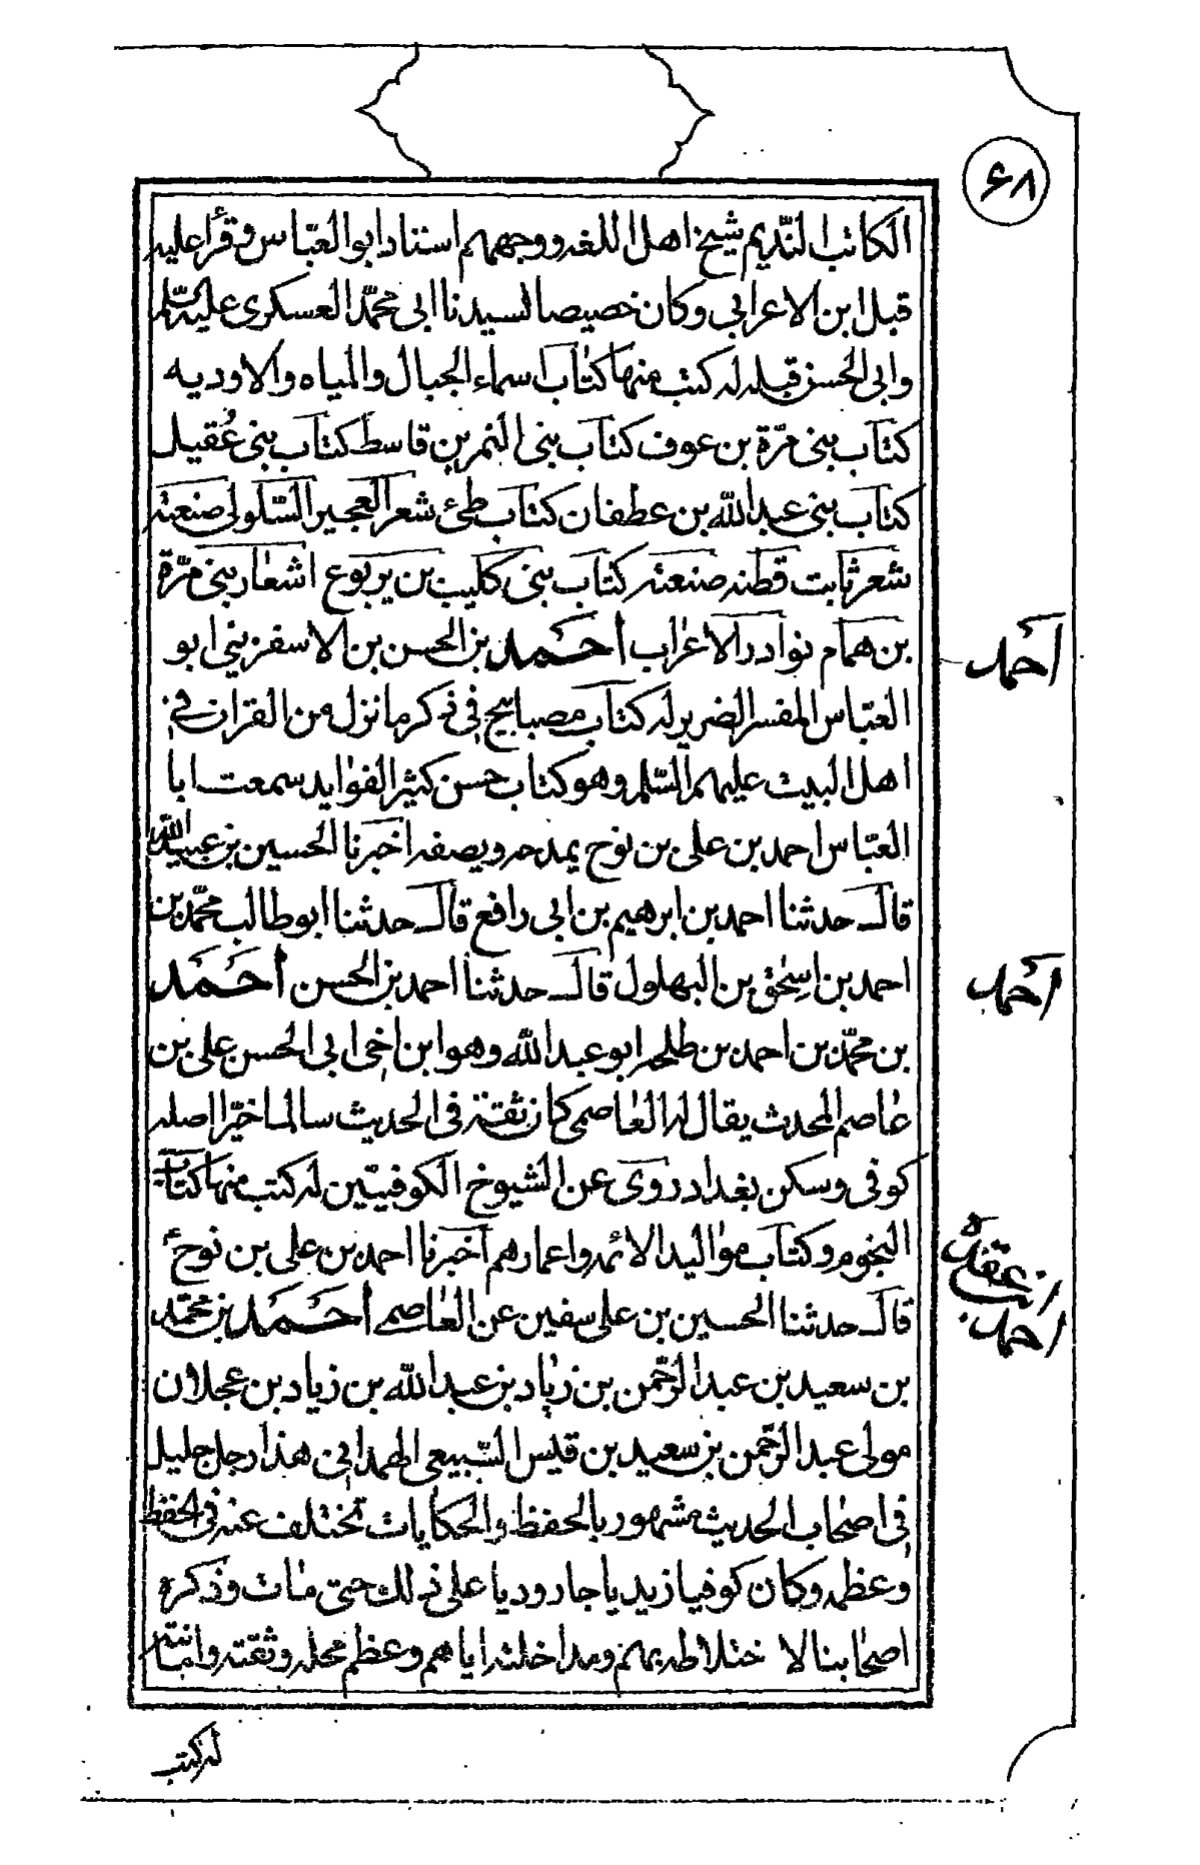 ٦٨
الكاتب النّديم شيخ اهل اللغه ووجههم استاد ابو العبّاس وقرأ عليه
قبل ابن الاعرابى وكان خصيصا لسيدنا ابى محمّد العسكرى عليه السّلم
وابى الحسن قبله له كتب منها كتاب اسماء الجبال والمياه والاوديه
كتاب بنى مرّة بن عوف كتاب بنى النمر بن قاسط كتاب بنى عُقيل
كتاب بنى عبد اللّه بن عطفان كتاب طئ شعر العجير السّلولى صنعته
شعر ثابت قطنه صنعته كتاب بنى كليب بن يربوع اشعار بنى مرّة
بن همام نوادر الاعراب أحَمد بن الحسن بن الاسفرينى ابو
احمد
العبّاس المفسر الضرير له كتاب مصابيح فى ذكر ما نزل من القران فى
اهل البيت عليهم السّلم وهو كتاب حسن كثير الفوايد سمعت ابا
العبّاس احمد بن على بن نوح يمدحه ويصفه اخبرنا الحسين بن عبيد اللّه
قال حدثنا احمد بن ابرهيم بن ابى رافع قال حدثنا ابو طالب محمّد بن
احمد بن اسحٰق بن البهلول قال حدثنا احمد بن الحسن أحَمَد
احمد
بن محمّد بن احمد بن طلحه ابو عبد اللّه وهو ابن اخى ابى الحسن على بن
عاصم المحدث يقال له العاصمى كان ثقة فى الحديث سالما خيّرا اصله
كوفى وسكن بغداد روى عن الشيوخ الكوفيّين له كتب منها كتاب
النجوم وكتاب مواليد الائمه واعمارهم اخبرنا احمد بن على بن نوح
قال حدثنا الحسين بن على سفين عن العاصمى أحَمَد بن محمّد
ابن عقدة
احمد
بن سعيد بن عبد الرّحمن بن زياد بن عبد اللّه بن زياد بن عجلان
مولى عبد الرّحمن بن سعيد بن قيس السّبيعى الهمدانى هذا رجل جليل
فى اصحاب الحديث مشهور بالحفظ والحكايات تختلف عنه فى الحفظ
وعظمه وكان كوفيا زيديا جاروديا على ذلك حتى مات وذكره
اصحابنا لاختلاطه بهم ومداخلته اياهم وعظم محله وثقته وامانته
له كتب